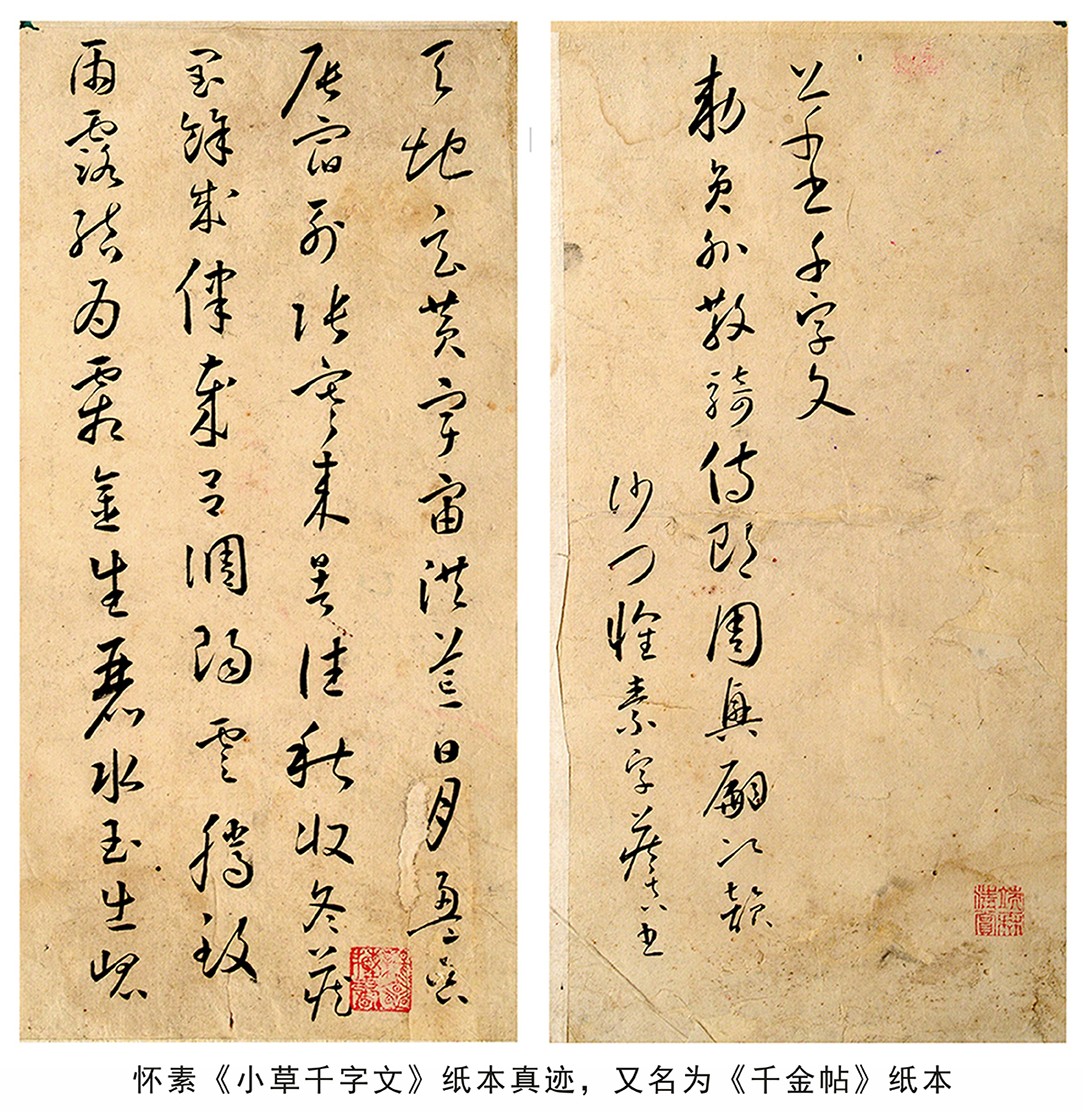 草書千字文
勅員外散騎侍郎周興嗣次韻
沙門懷素字藏真書
天地玄黃宇宙洪荒日月盈昃
辰宿列張寒來暑往秋收冬藏
閏餘成律歲呂調陽雲騰致
雨露結為霜金生麗水玉生崐
怀素《小草千字文》纸本真迹，又名为《千金帖》纸本